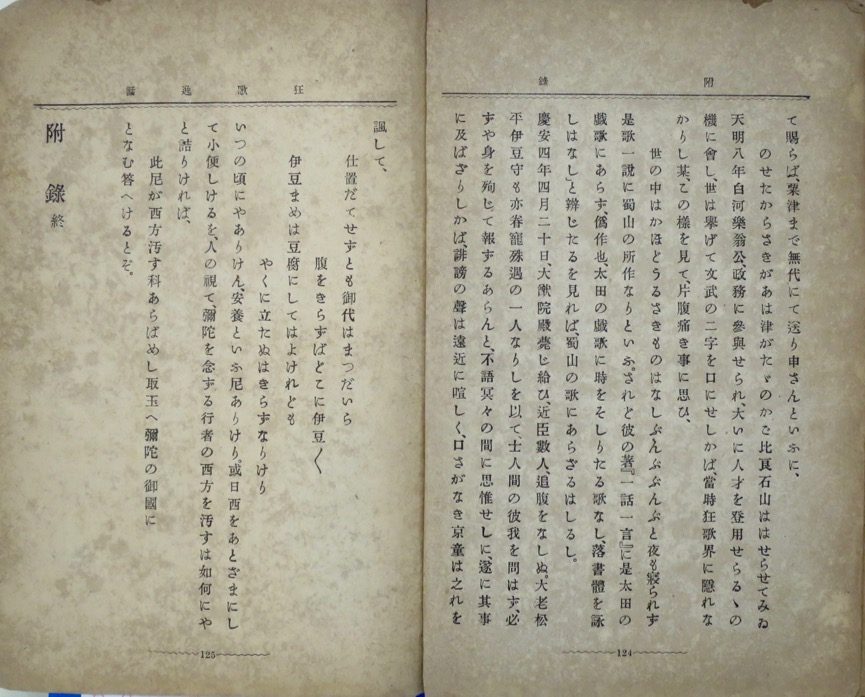 附錄
て賜らば、粟津まで無代にて送り申さんといふに、
のせたからさきがあは津がたゞのかご比良石山ははせらせてみゐ
天明八年白河樂翁公、政務に參與せられ、大いに人才を登用せらるゝの
機に會し、世は擧げて文武の二字を口にせしかば、當時狂歌界に隱れな
かりし某、この樣を見て、片腹痛き事に思ひ、
世の中はかほどうるさきものはなしぶんぶぶんぶと夜も寢られず
是歌一說に蜀山の所作なりといふ。されど彼の著『一話一言』に是太田の
戲歌にあらず、僞作也、太田の戲歌に時をそしりたる歌なし、落書體を詠
しはなし』と辨じたるを見れば、蜀山の歌にあらざるはしるし。
慶安四年四月二十日、大猷院殿薨じ給ひ、近臣數人、追腹をなしぬ。大老松
平伊豆守も亦眷寵殊遇の一人なりしを以て、士人間の彼我を問はず、必
ずや身を殉じて報ずるあらんと、不語冥々の間に思惟せしに、遂に其事
に及ばざりしかば、誹謗の聲は遠近に喧しく、口さがなき京童は之れを
124
狂歌逸話
諷して、
仕置だてせずとも御代はまつだいら
腹をきらずばどこに伊豆〱
伊豆まめは豆腐にしてはよけれども
やくに立たぬはきらずなりけり
いつの頃にやありけん、安養といふ尼ありけり。或日西をあとざまにし
て小便しけるを、人の視て、彌陀を念ずる行者の西方を汚すは如何にや
と詰りければ、
此尼が西方汚す科あらばめし取玉へ彌陀の御國に
となむ答へけるとぞ。
附錄終
125